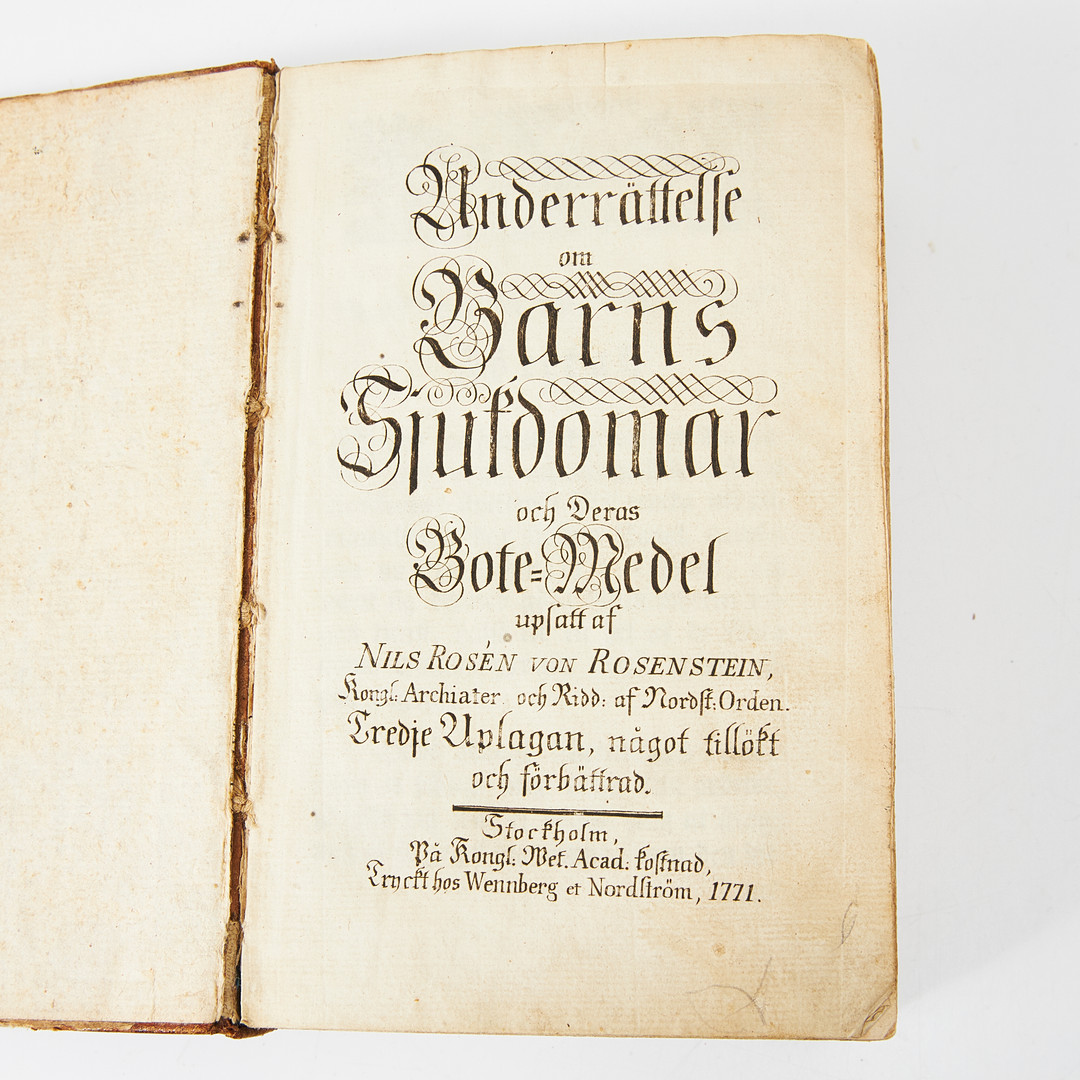 Underrättelse
om
Barns
Sjukdomar
och Deras
Bote=Medel
upsatt af
NILS ROSÉN VON ROSENSTEIN,
Kongl: Archiater och Ridd: af Nordst: Orden.
Tredje Uplagan, något tillökt
och förbättrad.
Stockholm,
På Kongl: Wet. Acad: kostnad,
Tryckt hos Wennberg et Nordström, 1771.